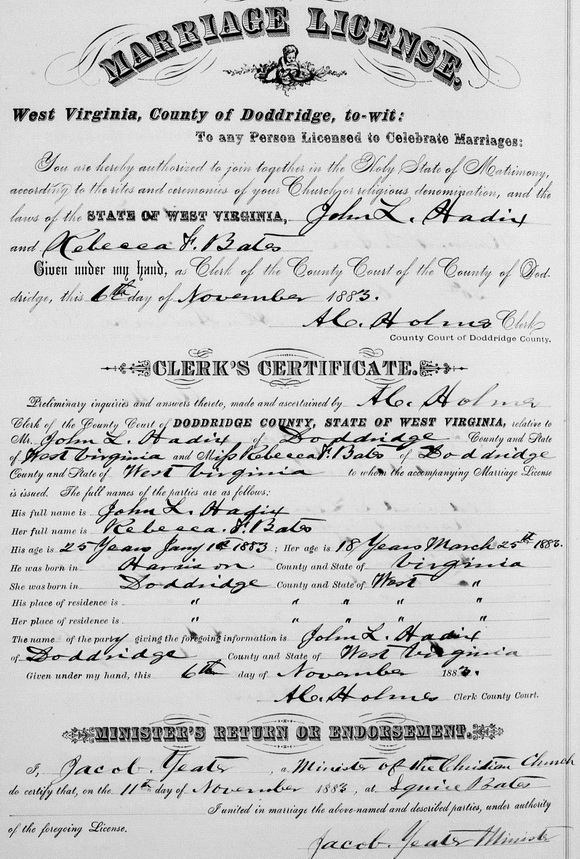 MARRIAGE LICENSE.
West Virginia, County of Doddridge, to-wit:
To any Person Licensed to Celebrate Marriages:
You are hereby authorized to join together in the Holy State of Matrimony,
according to the rites and ceremonies of your Church or religious denomination, and the
laws of the STATE OF WEST VIRGINIA, John L. Hadix
and Rebecca F. Bates
Given under my hand, as Clerk of the County Court of the County of Dod-
dridge, this 6th day of November 1883.
Holmes Clerk
County Court of Doddridge County.
CLERK'S CERTIFICATE.
Preliminary inquiries and answers thereto, made and ascertained by Holmes
Clerk of the County Court of DODDRIDGE COUNTY, STATE OF WEST VIRGINIA, relative to
Mr. John L. Hadix of Doddridge County and State
of West Virginia and Miss Rebecca F. Bates of Doddridge
County and State of West Virginia to whom the accompanying Marriage License
is issued. The full names of the parties are as follows:
His full name is John L. Hadix
Her full name is Rebecca. F. Bates
His age is 25 Years Jany 1st 1883; Her age is 18 Years March 25th 1883.
He was born in Harrison County and State of Virginia
She was born in Doddridge County and State of West "
His place of residence is " " " "
Her place of residence is " " " "
The name of the party giving the foregoing information is John L. Hadix
of Doddridge County and State of West Virginia
Given under my hand, this 6th day of November 1883.
Holmes Clerk County Court.
MINISTER'S RETURN OR ENDORSEMENT.
I, Jacob. Yeater, a Minister of the Christian Church
do certify that, on the 11th day of November 1883, at Squire Bates
I united in marriage the above-named and described parties, under authority
of the foregoing License.
Jacob. Yeater Minister